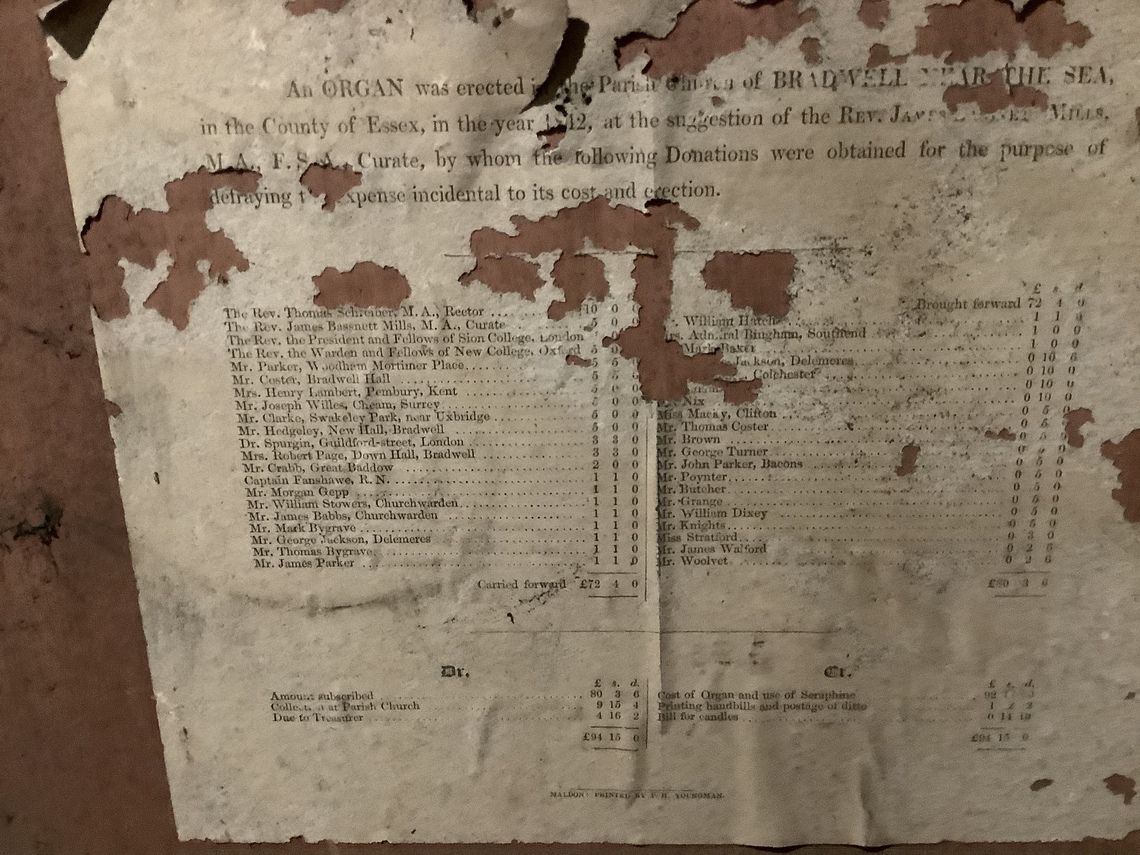 An ORGAN was erected in the Parish Church of BRADWELL NEAR THE SEA,
in the County of Essex, in the year 1842, at the suggestion of the REV. JAMES MILLS,
M.A., F.S.A., Curate, by whom the following Donations were obtained for the purpose of
defraying expense incidental to its cost and erection.
The Rev. Thomas Schreiner, M. A., Rector 10 0
The Rev. James Bassnett Mills, M. A., Curate 5 0
The Rev. the President and Fellows of Sion College, London
The Rev. the Warden and Fellows of New College, Oxford 5 0
Mr. Parker, Woodham Mortimer Place 5 5
Mr. Coster, Bradwell Hall 5
Mrs. Henry Lambert, Pembury, Kent 0
Mr. Joseph Willes, Cheam, Surrey 0 0
Mr. Clarke, Swakeley Park, near Uxbridge 5 0 0
Mr. Hedgeley, New Hall, Bradwell 5 0 0
Dr. Spurgin, Guildford-street, London 3 3 0
Mrs. Robert Page, Down Hall, Bradwell 3 3 0
Mr. Crabb, Great Baddow 2 0 0
Captain Fanshawe, R. N. 1 1 0
Mr. Morgan Gepp 1 1 0
Mr. William Stowers, Churchwarden 1 1 0
Mr. James Babbs, Churchwarden 1 1 0
Mr. Mark Bygrave 1 1 0
Mr. George Jackson, Delemeres 1 1 0
Mr. Thomas Bygrave 1 1 0
Mr. James Parker 1 1 0
Carried forward £72 4 0
£ s. d
Brought forward 72 4 0
William 1 1 0
Admiral Bingham, Southend 1 0 0
Mark Baker 1 0 0
Jackson, Delemeres 0 10 6
Colchester 0 10 0
0 10 0
Nix 0 10 0
Miss Macky, Clifton 0 5 0
Mr. Thomas Coster 0 5
Mr. Brown 0 5
Mr. George Turner 0 5 0
Mr. John Parker, Bacons 0 5 0
Mr. Poynter 0 5 0
Mr. Butcher 0 5 0
Mr. Grange 0 5 0
Mr. William Dixey 0 5 0
Mr. Knights 0 5 0
Miss Stratford 0 3 0
Mr. James Walford 0 2 6
Mr. Woolvet 0 2 6
£80 3 6
Dr.
£ s. d.
Amount subscribed 80 3 6
Collected at Parish Church 9 15 4
Due to Treasurer 4 16 2
£94 15 0
Cr.
£ s. d.
Cost of Organ and use of Seraphine 92
Printing handbills and postage of ditto 1
Bill for candles 0 14 10
£94 15 0
MALDON: PRINTED BY P. H. YOUNGMAN.